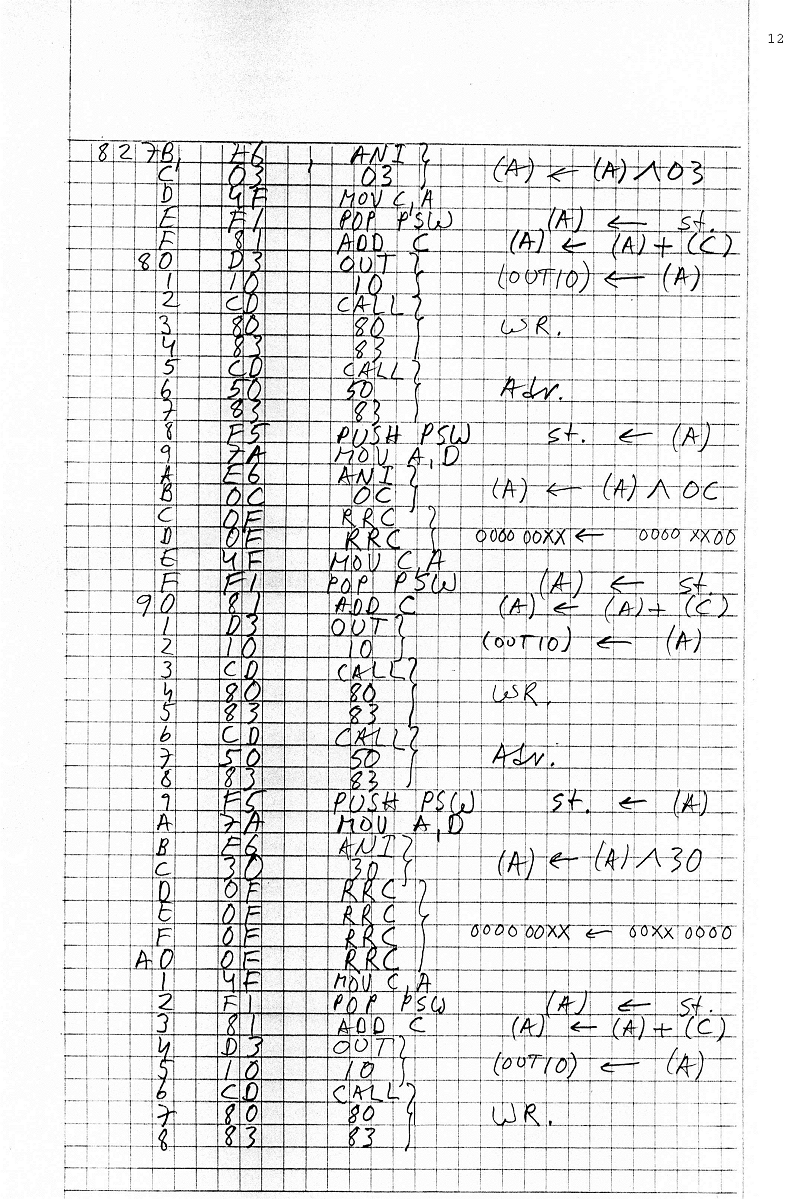 12
827B, E6 , ANI } (A) ← (A) ∧ 03
C 03 03
D 4F MOV C,A
E F1 POP PSW (A) ← st.
F 81 ADD C (A) ← (A) + (C)
80 D3 OUT } (OUT10) ← (A)
1 10 10
2 CD CALL }
3 80 80 WR.
4 83 83
5 CD CALL }
6 50 50 Adr.
7 83 83
8 F5 PUSH PSW st. ← (A)
9 7A MOV A,D
A E6 ANI }
B 0C 0C (A) ← (A) ∧ 0C
C 0F RRC }
D 0F RRC 0000 00XX ← 0000 XX00
E 4F MOV C,A
F F1 POP PSW (A) ← st.
90 81 ADD C (A) ← (A) + (C)
1 D3 OUT }
2 10 10 (OUT10) ← (A)
3 CD CALL }
4 80 80 WR.
5 83 83
6 CD CALL }
7 50 50 Adr.
8 83 83
9 F5 PUSH PSW st. ← (A)
A 7A MOV A,D
B E6 ANI }
C 30 30 (A) ← (A) ∧ 30
D 0F RRC }
E 0F RRC
F 0F RRC 0000 00XX ← 00XX 0000
A0 0F RRC
1 4F MOV C,A
2 F1 POP PSW (A) ← st.
3 81 ADD C (A) ← (A) + (C)
4 D3 OUT }
5 10 10 (OUT10) ← (A)
6 CD CALL }
7 80 80 WR.
8 83 83